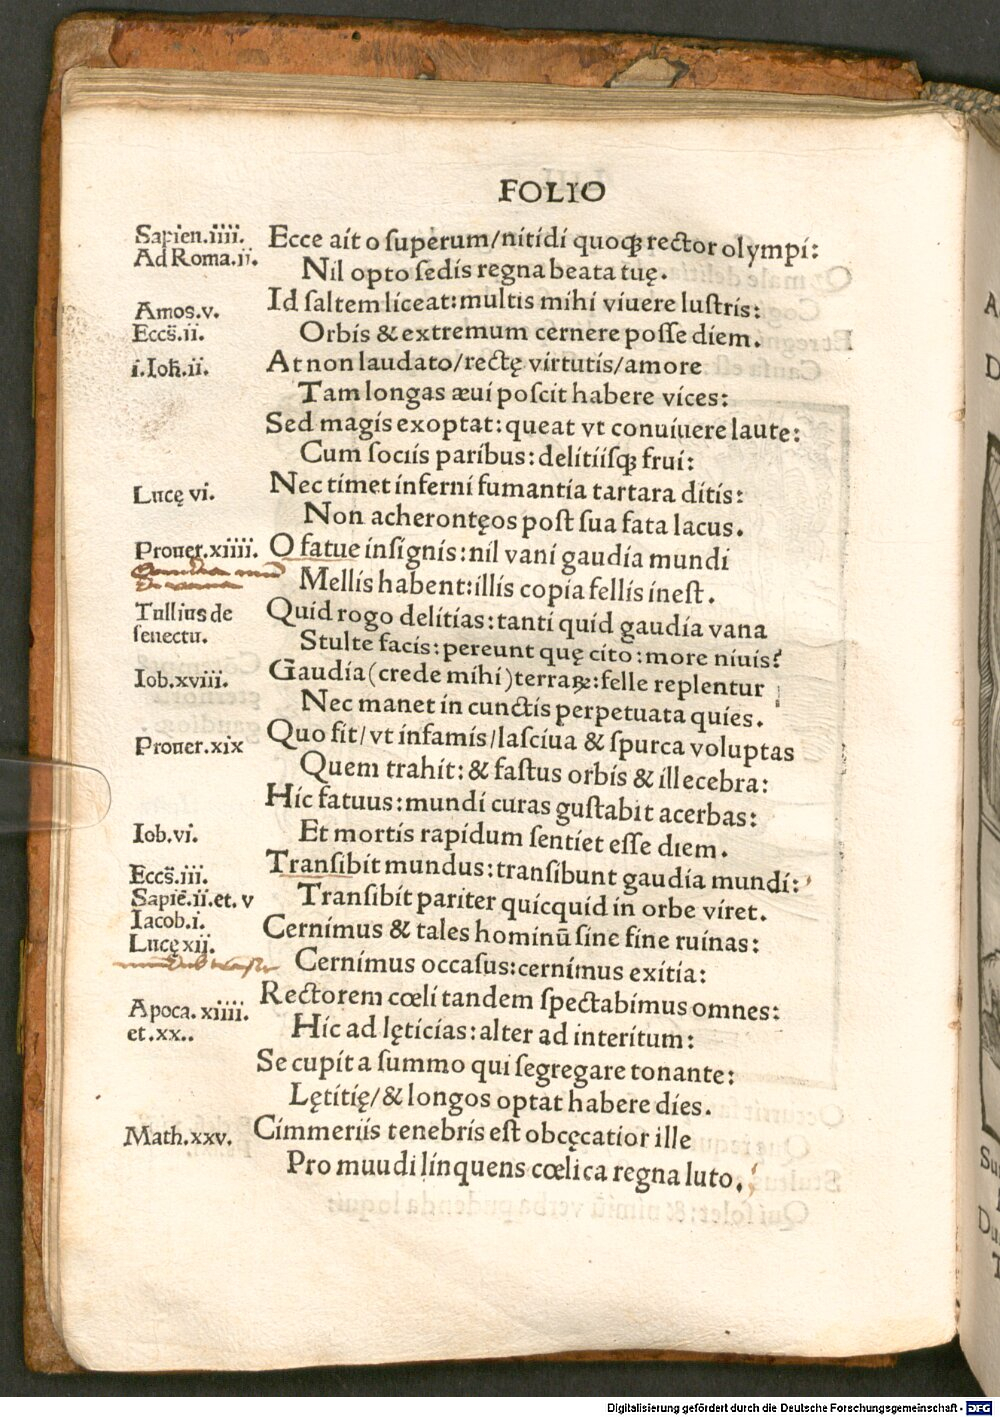 FOLIO
Sapien.iiii. Ecce ait o superum/nitidi quoqꝫ rector olympi:
Ad Roma.ii. Nil opto sedis regna beata tuę.
Id saltem liceat: multis mihi viuere lustris:
Amos.v.
Eccs̄.ii. Orbis & extremum cernere posse diem.
i.Ioħ.ii. At non laudato/rectę virtutis/amore
Tam longas æui poscit habere vices:
Sed magis exoptat: queat vt conuiuere laute:
Cum sociis paribus: delitiisqꝫ frui:
Lucę vi. Nec timet inferni fumantia tartara ditis:
Non acherontęos post sua fata lacus.
Prouer.xiiii. O fatue insignis: nil vani gaudia mundi
Mellis habent: illis copia fellis inest.
Tullius de Quid rogo delitias: tanti quid gaudia vana
senectu. Stulte facis: pereunt quę cito: more niuis?
Iob.xviii. Gaudia (crede mihi) terraꝝ: felle replentur
Nec manet in cunctis perpetuata quies.
Prouer.xix Quo fit/vt infamis/lasciua & spurca voluptas
Quem trahit: & fastus orbis & illecebra:
Hic fatuus: mundi curas gustabit acerbas:
Iob.vi. Et mortis rapidum sentiet esse diem.
Eccs̄.iii. Transibit mundus: transibunt gaudia mundi:
Sapiē.ii.et.v Transibit pariter quicquid in orbe viret.
Iacob.i. Cernimus & tales hominū sine fine ruinas:
Lucę xii.
Cernimus occasus: cernimus exitia:
Apoca.xiiii. Rectorem cœli tandem spectabimus omnes:
et.xx.. Hic ad lęticias: alter ad interitum:
Se cupit a summo qui segregare tonante:
Lętitię/& longos optat habere dies.
Math.xxv. Cimmeriis tenebris est obcęcatior ille
Pro muudi linquens cœlica regna luto.
Digitalisierung gefördert durch die Deutsche Forschungsgemeinschaft - DFG